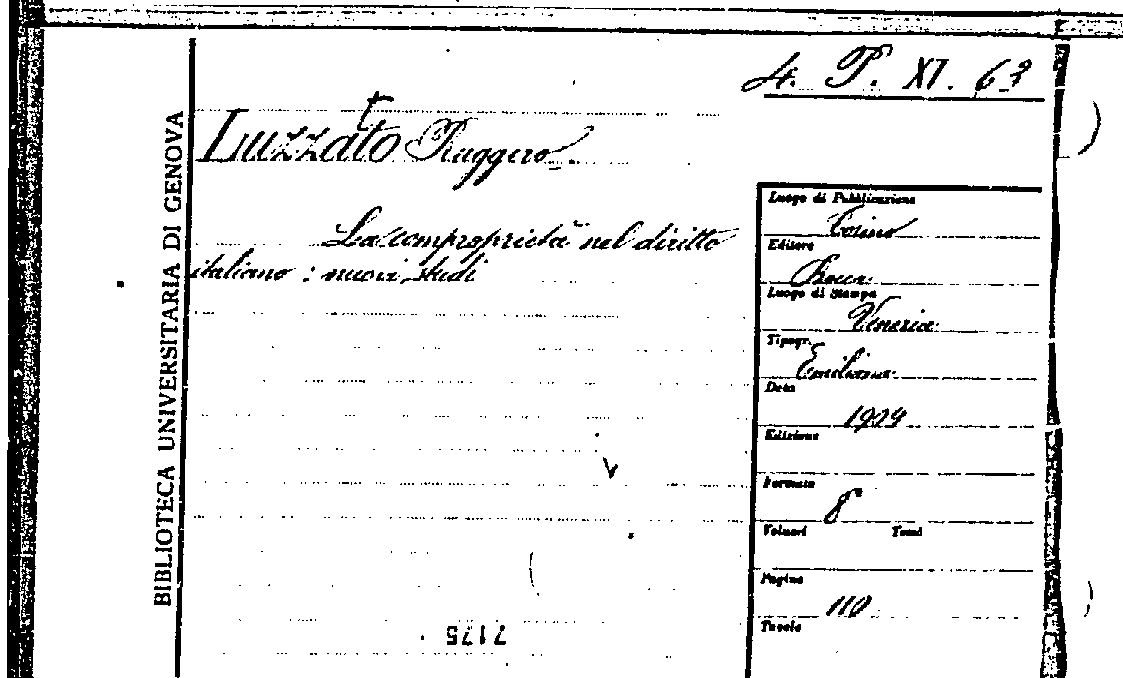 4. P. XI. 63
BIBLIOTECA UNIVERSITARIA DI GENOVA
Luzzatto Ruggero.
La comproprietà nel diritto
italiano : nuovi studi
Luogo di Pubblicazione
Torino
Editore
Bocca
Luogo di Stampa
Venezia
Tipogr.
Emiliana
Data
1929
Edizione
Formato
8°
Volumi Tomi
Pagine
110
Tavole
7175